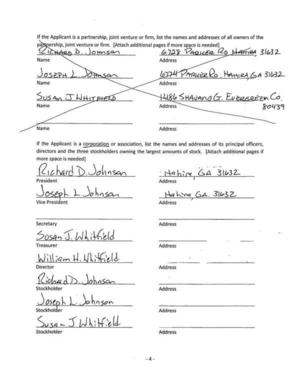 If the Applicant is a partnership, joint venture or firm, list the names and addresses of all owners of the
partnership, joint venture or firm. [Attach additional pages if more space is needed]
Richard D. Johnson 6728 Parker Rd. Hahira 31632
Name Address
Joseph L Johnson 6774 Parker Rd. Hahira, GA 31632
Name Address
Susan J Whitfield 1486 Shavano G. Evergreen Co.
80439
Name Address
Name Address
If the Applicant is a corporation or association, list the names and addresses of its principal officers,
directors and the three stockholders owning the largest amounts of stock. (Attach additional pages if
more space is needed)
Richard D. Johnson Hahira, GA 31632
President Address
Joseph L. Johnson Hahira, GA. 31632
Vice President Address
Secretary Address
Susan J. Whitfield
Treasurer Address
William H. Whitfield
Director Address
Richard D. Johnson
Stockholder Address
Joseph L. Johnson
Stockholder Address
Susan J Whitfield
Stockholder Address
- 4 -